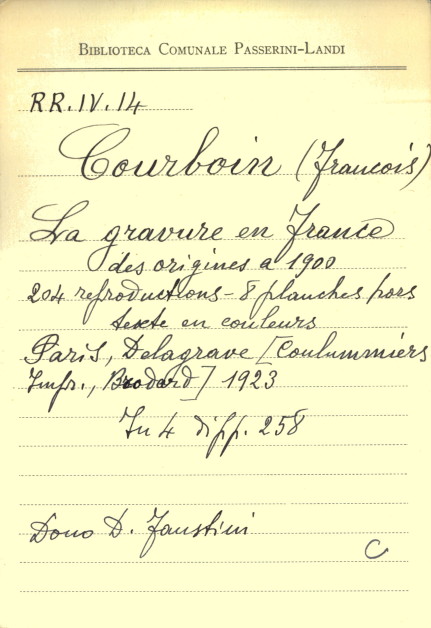 BIBLIOTECA COMUNALE PASSERINI-LANDI
RR.IV.14
Courboin (Francois)
La gravure en France
des origines a 1900
204 reproductions - 8 planches hors
texte en couleurs
Paris, Delagrave [Coulummiers
Impr., Brodard] 1923
In 4 di pp. 258
Dono D. Faustini
C